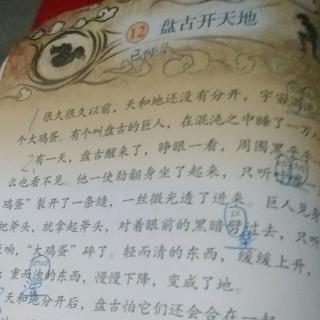 12 盘古开天地
很久很久以前，天和地还没有分开，宇宙混沌
个大鸡蛋。有个叫盘古的巨人，在混沌之中睡了一万
有一天，盘古醒来了，睁眼一看，周围黑乎乎
么也看不见。他一使劲翻身坐了起来，只听
鸡蛋”裂开了一条缝，一丝微光透了进来。巨人见身
把斧头，就拿起斧头，对着眼前的黑暗劈过去，只听
巨响，“大鸡蛋”碎了。轻而清的东西，缓缓上升，
；重而浊的东西，慢慢下降，变成了地。
天和地分开后，盘古怕它们还会合在一起